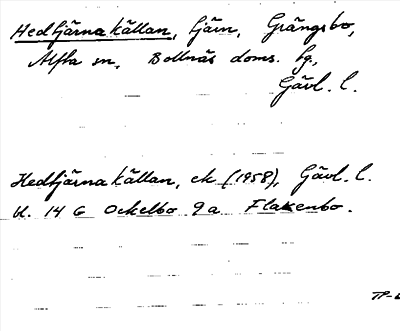 Hedtjärnakällan, tjärn, Grängsbo,
Alfta sn, Bollnäs doms. hg.,
Gävl. l.
Hedtjärnakällan, ek (1958), Gävl. l.
bl. 14 G Ockelbo 9a Flakenbo.